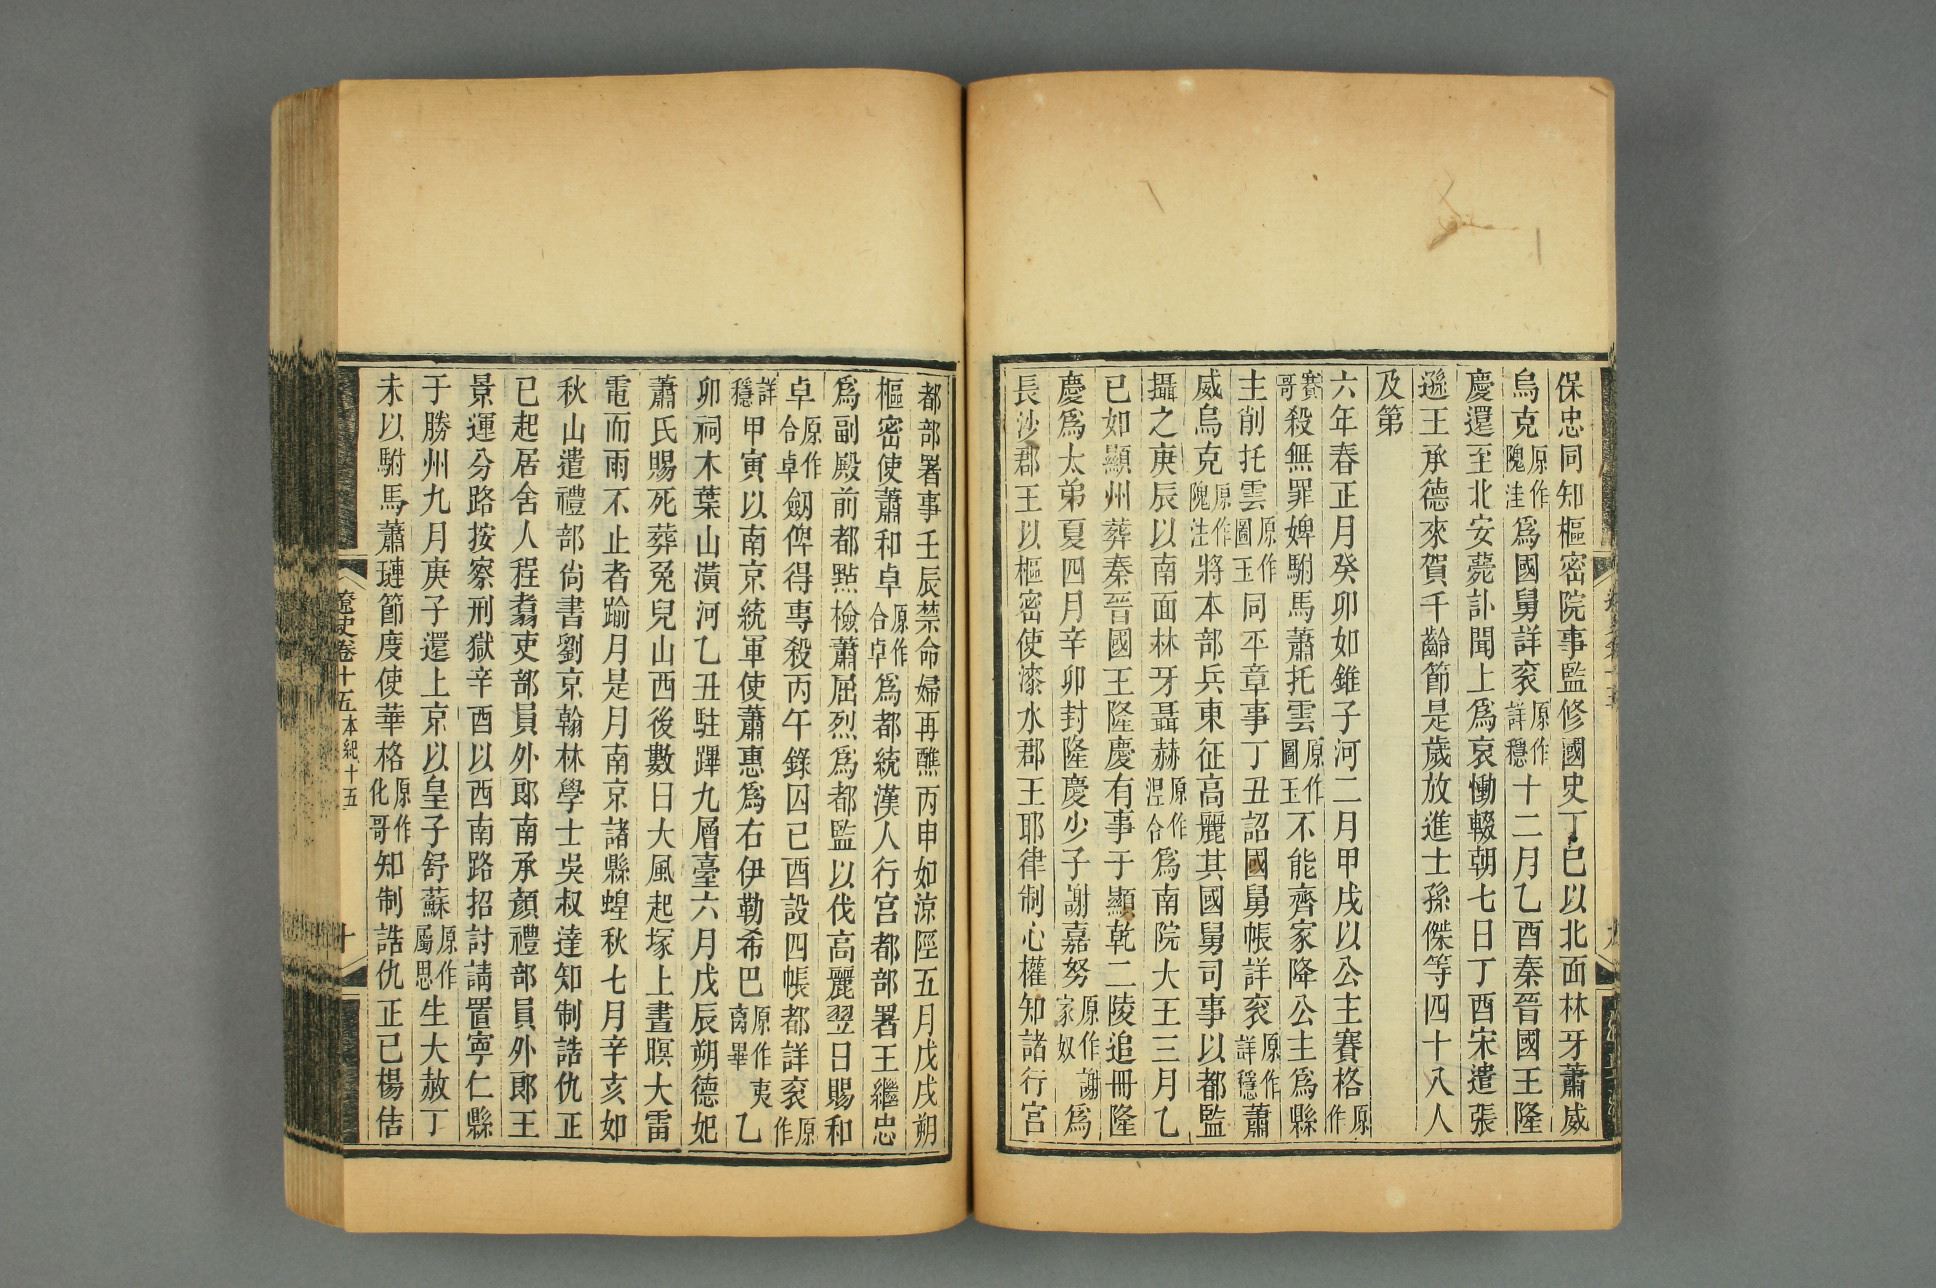 保忠同知樞密院事監修國史丁巳以北面林牙蕭威
烏克原作隗洼爲國舅詳衮原作詳穩十二月乙酉秦晉國王隆
慶還至北安薨訃聞上爲哀慟輟朝七日丁酉宋遣張
遜王承德來賀千齡節是歲放進士孫傑等四十八人
及第
六年春正月癸卯如錐子河二月甲戌以公主賽格原作
賽哥殺無罪婢駙馬蕭托雲原作圖玉不能齊家降公主爲縣
主削托雲原作圖玉同平章事丁丑詔國舅帳詳衮原作詳穩蕭
威烏克原作隗洼將本部兵東征高麗其國舅司事以都監
攝之庚辰以南面林牙聶赫原作涅合爲南院大王三月乙
巳如顯州葬秦晉國王隆慶有事于顯乾二陵追冊隆
慶爲太弟夏四月辛卯封隆慶少子謝嘉努原作謝家奴爲
長沙郡王以樞密使漆水郡王耶律制心權知諸行宮
都部署事壬辰禁命婦再醮丙申如涼陘五月戊戌朔
樞密使蕭和卓原作合卓爲都統漢人行宮都部署王繼忠
爲副殿前都㸃檢蕭屈烈爲都監以伐高麗翌日賜和
卓原作合卓劔俾得專殺丙午錄囚己酉設四帳都詳衮原作
詳穩甲寅以南京統軍使蕭惠爲右伊勒希巴原作夷离畢乙
卯祠木葉山潢河乙丑駐蹕九層臺六月戊辰朔德妃
蕭氏賜死葬兔兒山西後數日大風起塚上晝暝大雷
電而雨不止者踰月是月南京諸縣蝗秋七月辛亥如
秋山遣禮部尚書劉京翰林學士吳叔達知制誥仇正
已起居舍人程翥吏部員外郎南承顏禮部員外郎王
景運分路按察刑獄辛酉以西南路招討請置寧仁縣
于勝州九月庚子還上京以皇子舒蘇原作屬思生大赦丁
未以駙馬蕭璉節度使華格原作化哥知制誥仇正已楊佶
遼史卷十五 本紀十五
十